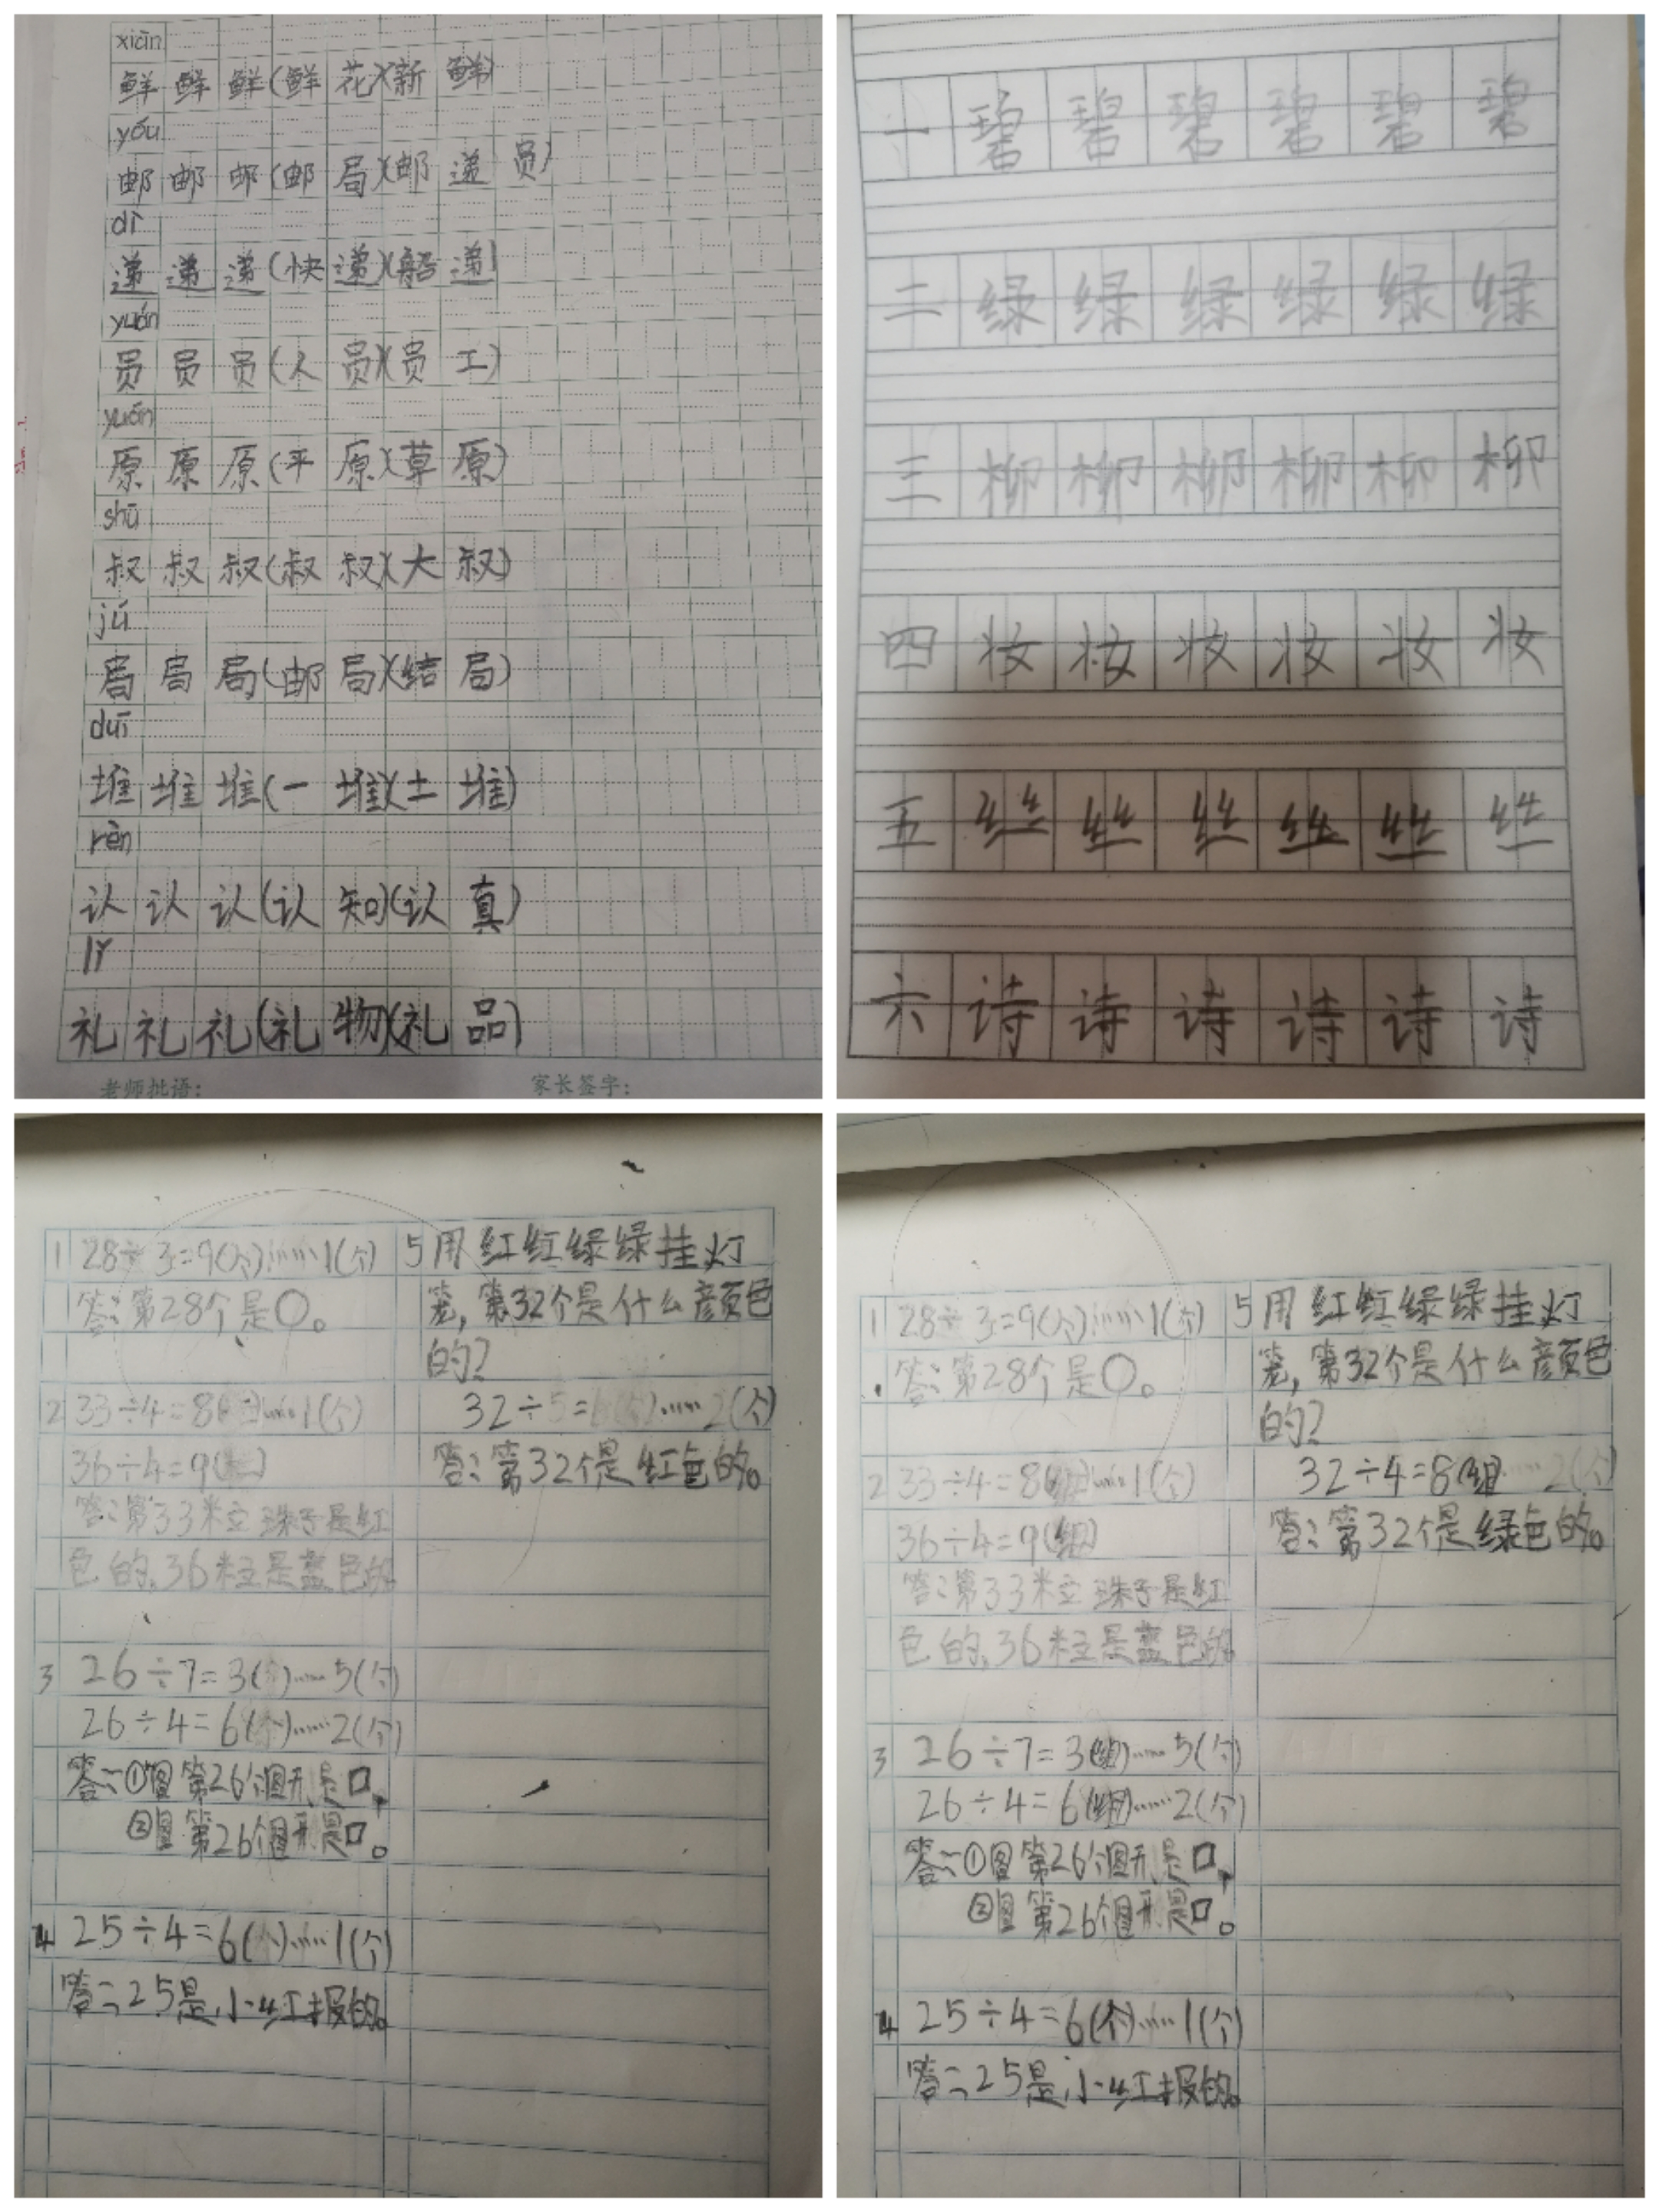 xiān
鲜 鲜 鲜(鲜 花)(新 鲜)
yóu
邮 邮 邮(邮 局)(邮 递 员)
dì
递 递 递(快 递)(船 递)
yuán
员 员 员(人 员)(员 工)
yuán
原 原 原(平 原)(草 原)
shū
叔 叔 叔(叔 叔)(大 叔)
jú
局 局 局(邮 局)(结 局)
duī
堆 堆 堆(一 堆)(土 堆)
rèn
认 认 认(认 知)(认 真)
lǐ
礼 礼 礼(礼 物)(礼 品)
老师批语: 家长签字:
一 碧 碧 碧 碧 碧 碧
二 绿 绿 绿 绿 绿 绿
三 柳 柳 柳 柳 柳 柳
四 妆 妆 妆 妆 妆 妆
五 丝 丝 丝 丝 丝 丝
六 诗 诗 诗 诗 诗 诗
1 28÷3=9(个)……1(个)
答:第28个是○。
2 33÷4=8……1(个)
36÷4=9
答:第33粒珠子是红
色的,36粒是蓝色的
3 26÷7=3……5(个)
26÷4=6(个)……2(个)
答:①图第26个图形是□,
②图第26个图形是□。
4 25÷4=6(个)……1(个)
答:25是小红报的。
5 用红红绿绿挂灯
笼,第32个是什么颜色
的?
32÷5=6(个)……2(个)
答:第32个是红色的。
1 28÷3=9(个)……1(个)
答:第28个是○。
2 33÷4=8(组)……1(个)
36÷4=9(组)
答:第33粒珠子是红
色的,36粒是蓝色的
3 26÷7=3(组)……5(个)
26÷4=6(组)……2(个)
答:①图第26个图形是□,
②图第26个图形是□。
4 25÷4=6(个)……1(个)
答:25是小红报的。
5 用红红绿绿挂灯
笼,第32个是什么颜色
的?
32÷4=8(组……2(个)
答:第32个是绿色的。